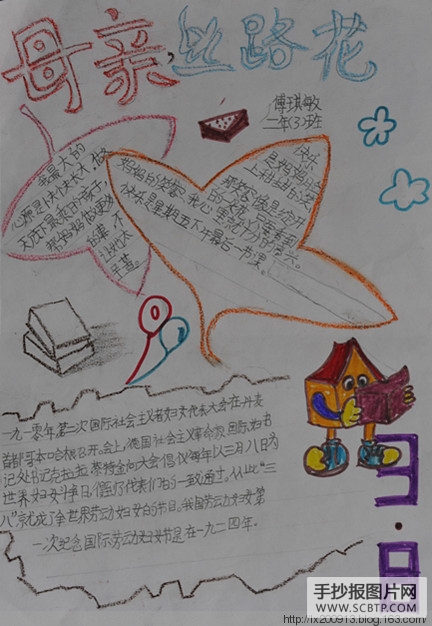 母亲,丝路花
傅琪敏
二年(3)班
我最大的
心愿是快快长大,做
天底下最亲的孩子,
帮妈妈做更多
的事,不
让她太
辛苦。
快乐
是妈妈脸
上甜甜的笑
妈妈的笑容。我心里
快乐是星期五下午最后一节课。
一九一零年第二次国际社会主义者妇女代表大会在丹麦
首都哥本哈根召开。会上,德国社会主义革命家国际妇女书
记处书记克拉拉·蔡特金向大会倡议每年以三月八日为
世界妇女斗争日,得到了代表们的一致通过。从此"三
八"就成了全世界劳动妇女的节日。我国劳动妇女第
一次纪念国际劳动妇女节是在一九二四年.
3·8
手抄报图片网
WWW.SCBTP.COM
http://lx200913.blog.163.com/